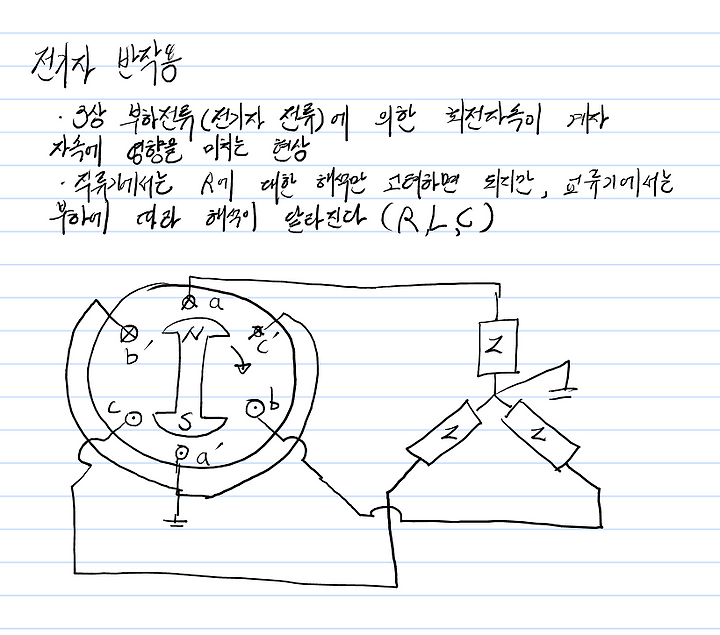 전기자 반작용
· 3상 부하전류(전기자 전류)에 의한 회전자속이 계자
자속에 영향을 미치는 현상
· 직류기에서는 R에 대한 해석만 고려하면 되지만, 교류기에서는
부하에 따라 해석이 달라진다 (R, L, C)
a
b'
N
c'
Z
c
S
b
a'
Z
Z